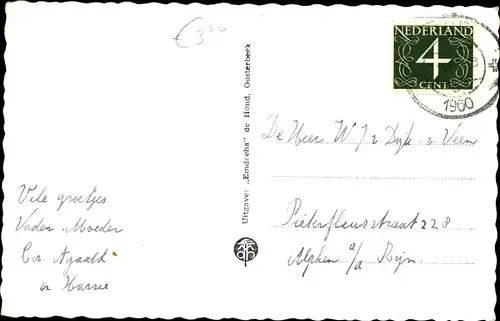 € 3 50
NEDERLAND
4
CENT
1960
Uitgave: „Emdeeha" de Hond, Oosterbeek
De Heer W J v Dijk v Veen
Pieterfleurstraat 228
Alphen a/d Rijn.
Vele groetjes
Vader Moeder
Cor Agaath
en Harrie